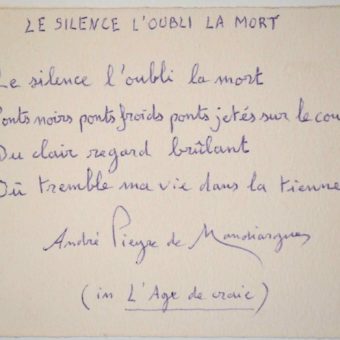 LE SILENCE L'OUBLI LA MORT
Le silence l'oubli la mort
Ponts noirs ponts froids ponts jetés sur le cou
Du clair regard brûlant
Où tremble ma vie dans la tienne
André Pieyre de Mandiargues
(in L'Age de craie)